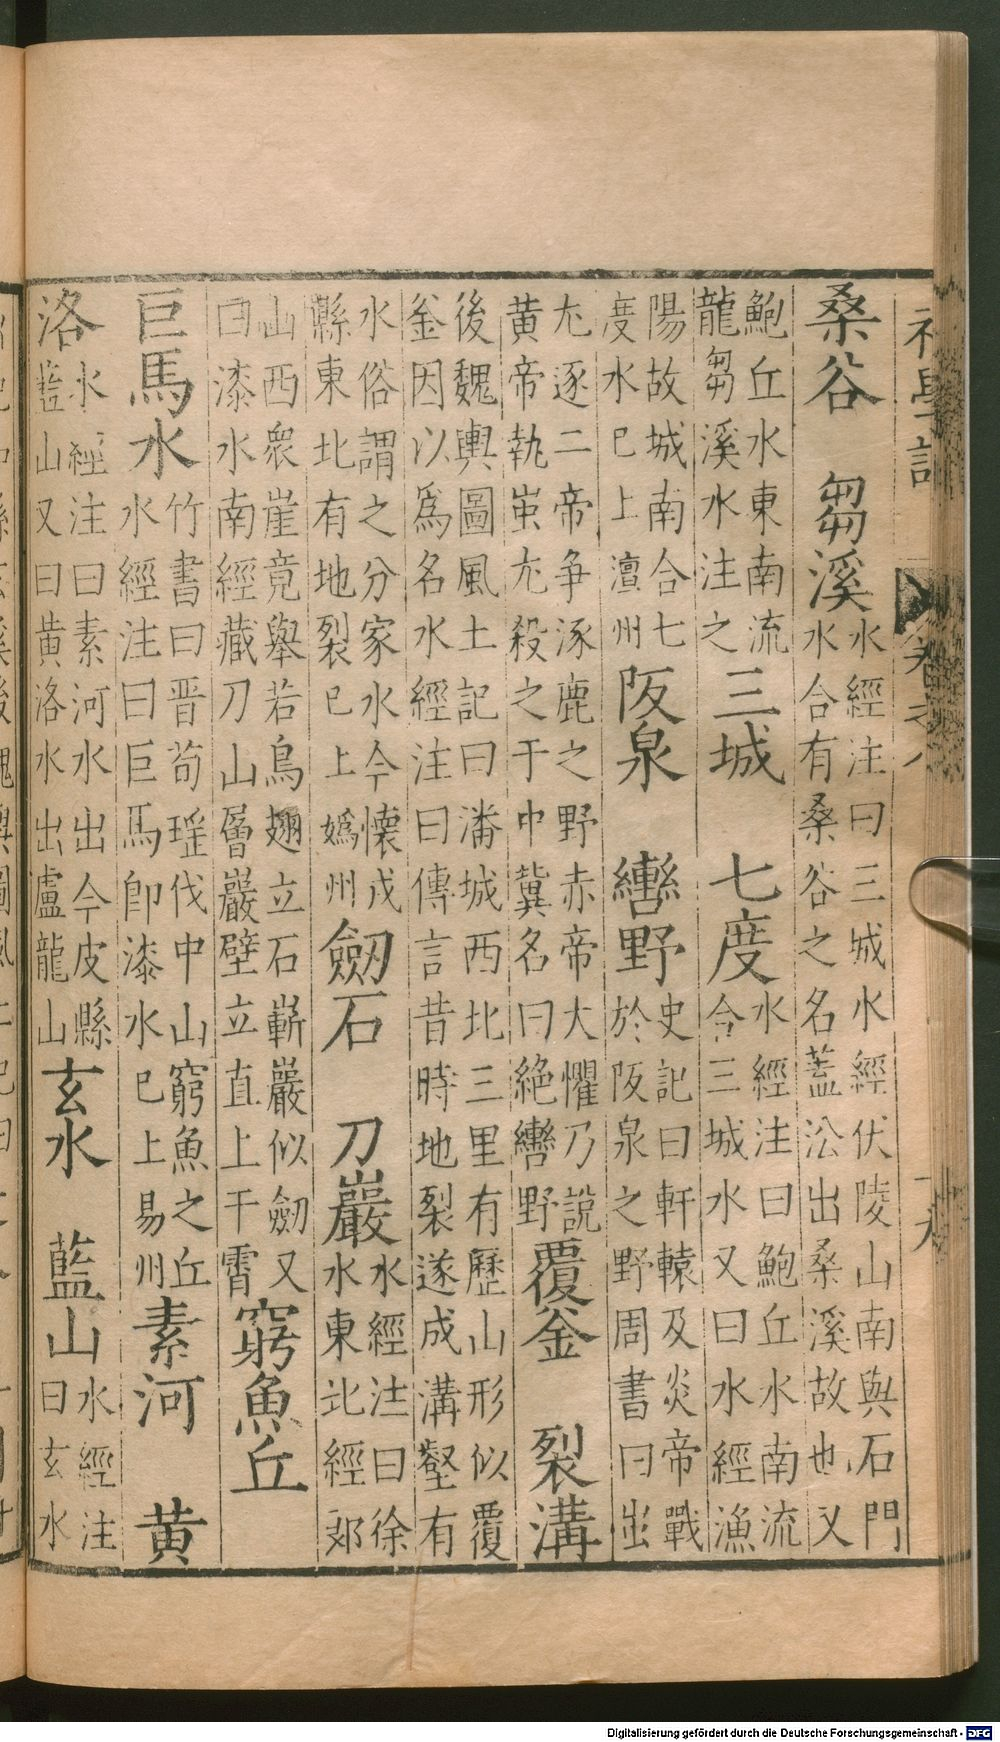 卷之八
桑谷 芻溪水經注曰三城水經伏陵山南與石門
水合有桑谷之名蓋㳂出桑溪故也又
鮑丘水東南流
龍芻溪水注之三城 七度水經注曰鮑丘水南流
今三城水又曰水經漁
陽故城南合七
度水已上澶州阪泉 轡野史記曰軒轅及炎帝戰
於阪泉之野周書曰蚩
尢逐二帝爭涿鹿之野赤帝大懼乃說
黃帝執蚩尢殺之于中冀名曰絕轡野覆釡 裂溝
後魏輿圖風土記曰潘城西北三里有歷山形似覆
釡因以爲名水經注曰傳言昔時地裂遂成溝壑有
水俗謂之分家水今懷戎
縣東北有地裂已上媯州劒石 刀巖水經注曰徐
水東北經郟
山西衆崖竟舉若鳥翅立石嶄巖似劒又
曰漆水南經藏刀山層巖壁立直上干霄窮魚丘
巨馬水竹書曰晋荀瑶伐中山窮魚之丘
水經注曰巨馬卽漆水已上易州素河 黃
洛水經注曰素河水出今皮縣
藍山又曰黃洛水出盧龍山玄水 藍山水經注
曰玄水
Digitalisierung gefördert durch die Deutsche Forschungsgemeinschaft - DFG